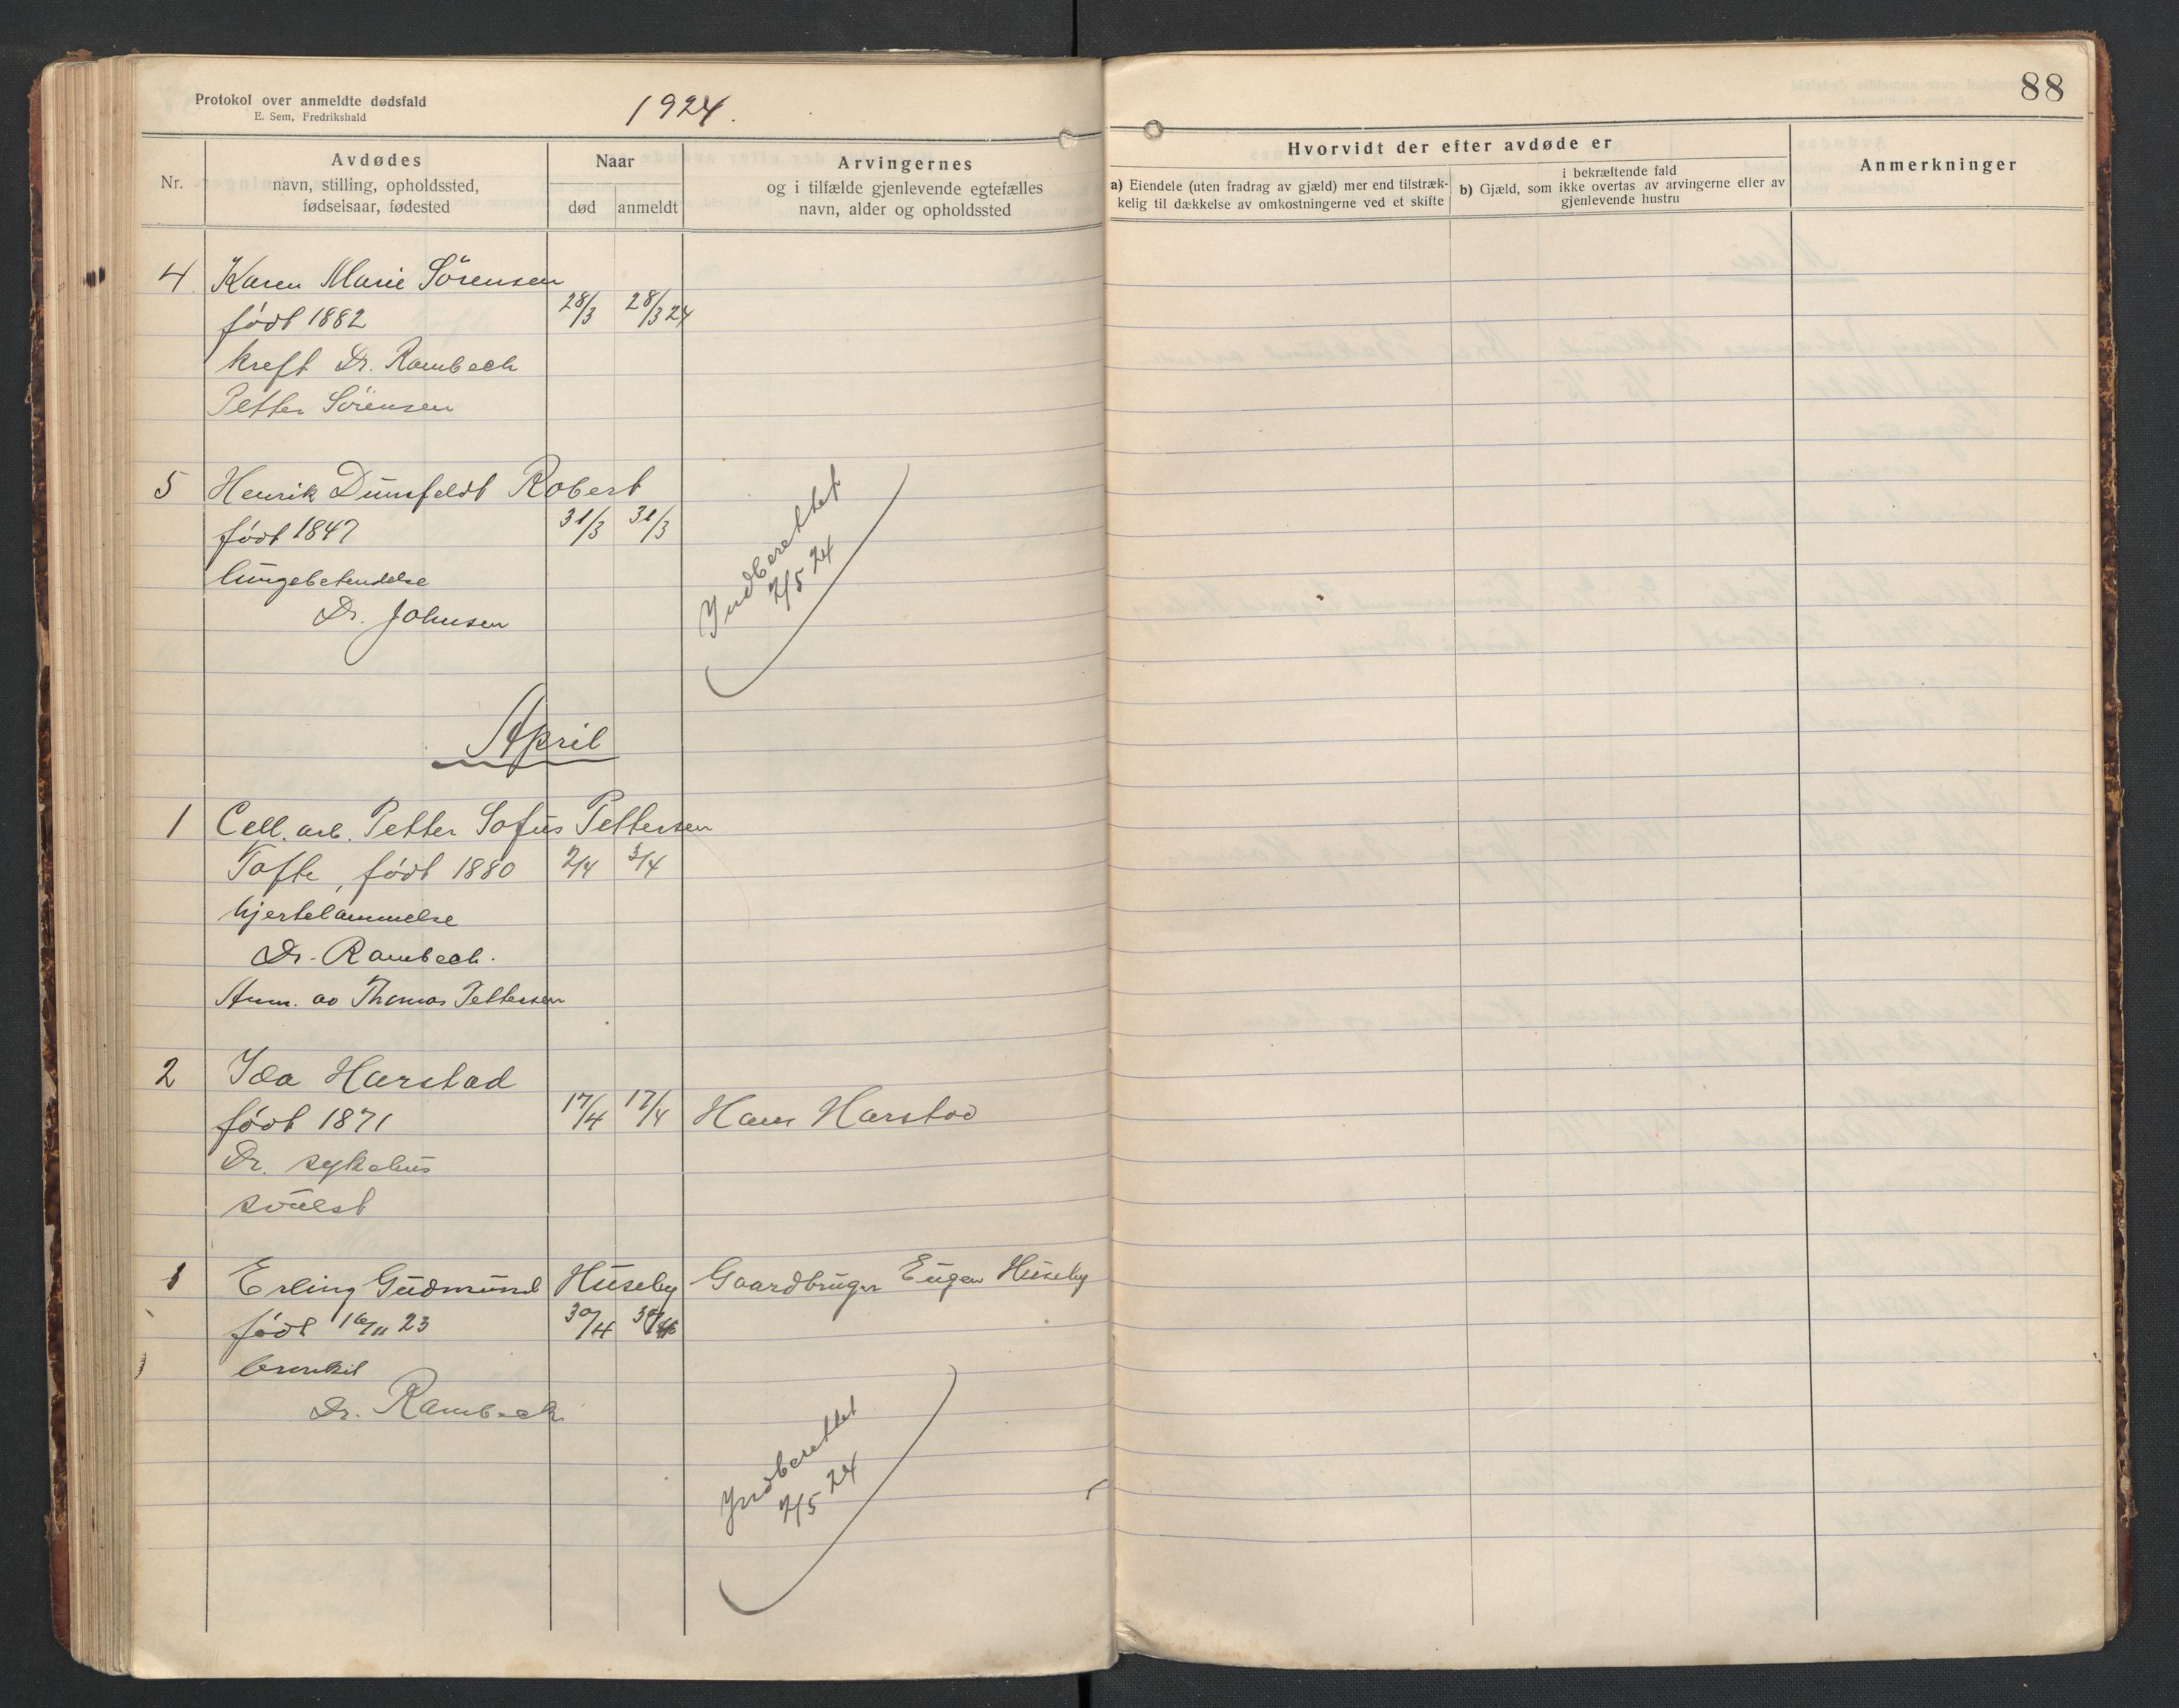 Protokol over anmeldte dødsfald
E. Sem, Fredrikshald
1924.
88
Nr.
Avdødes
navn, stilling, opholdssted,
fødselsaar, fødested
Naar
død anmeldt
Arvingernes
og i tilfælde gjenlevende egtefælles
navn, alder og opholdssted
Hvorvidt der efter avdøde er
a) Eiendele (uten fradrag av gjæld) mer end tilstræk-
kelig til dækkelse av omkostningerne ved et skifte
i bekræftende fald
b) Gjæld, som ikke overtas av arvingerne eller av
gjenlevende hustru
Anmerkninger
4 Karen Marie Sörensen
født 1882 28/3 28/3 24
kreft Dr. Rambech
Petter Sörensen
5 Henrik Dunsfeldt Robert
født 1847 31/3 31/3
lungebetendelse
Dr. Johnsen
Indberettet
2/5 24
April
1 Cell. arb. Petter Sofus Pettersen
Tofte, født 1880 2/4 3/4
hjertelammelse
Dr. Rambech.
Anm. av Thomas Pettersen
2 Ida Harstad
født 1871 17/4 17/4 Hans Harstad
Dr. sykehus
svulst
Erling Gudmund Huseby Gaardbruger Eugen Huseby
født 16/11 23 30/4 30/4
bronkit
Dr. Rambech
Indberettet
2/5 24